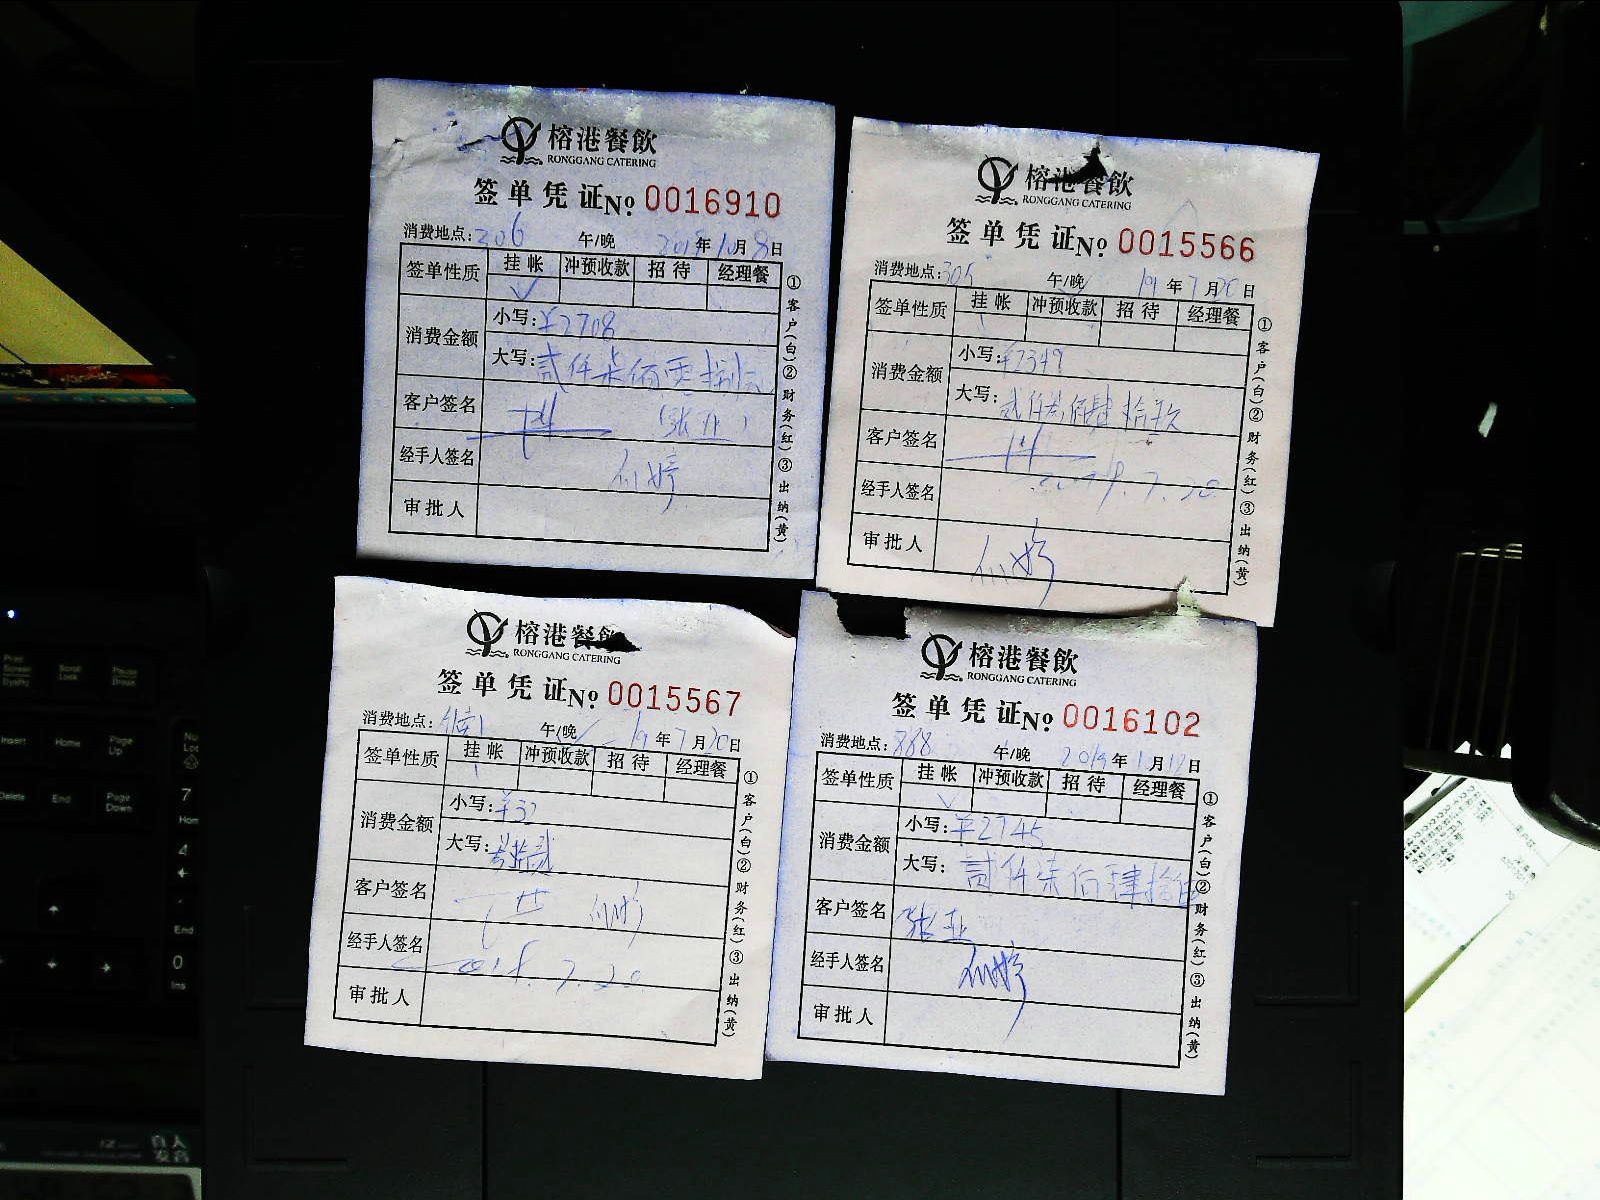 榕港餐飲
RONGGANG CATERING
签单凭证 No 0016910
消费地点: 306 午/晚 2019年10月8日
签单性质 挂帐 冲预收款 招待 经理餐
消费金额 小写: ¥2708
大写: 贰仟柒佰零捌元
客户签名 (张业)
经手人签名
审批人
①客户(白)②财务(红)③出纳(黄)
榕港餐飲
RONGGANG CATERING
签单凭证 No 0015566
消费地点: 305 午/晚 19年7月20日
签单性质 挂帐 冲预收款 招待 经理餐
消费金额 小写: ¥2349
大写: 贰仟叁佰肆拾玖
客户签名
经手人签名 2019.7.20
审批人
①客户(白)②财务(红)③出纳(黄)
榕港餐飲
RONGGANG CATERING
签单凭证 No 0015567
消费地点: 午/晚 19年7月20日
签单性质 挂帐 冲预收款 招待 经理餐
消费金额 小写: ¥32
大写: 叁拾贰
客户签名
经手人签名 7.20
审批人
①客户(白)②财务(红)③出纳(黄)
榕港餐飲
RONGGANG CATERING
签单凭证 No 0016102
消费地点: 888 午/晚 2019年1月12日
签单性质 挂帐 冲预收款 招待 经理餐
消费金额 小写: ¥2745
大写: 贰仟柒佰肆拾伍
客户签名 张业
经手人签名
审批人
①客户(白)②财务(红)③出纳(黄)
Print Screen SysRq
Scroll Lock
Pause Break
Insert
Home
Page Up
Delete
End
Page Down
7
Home
4
End
0
Ins